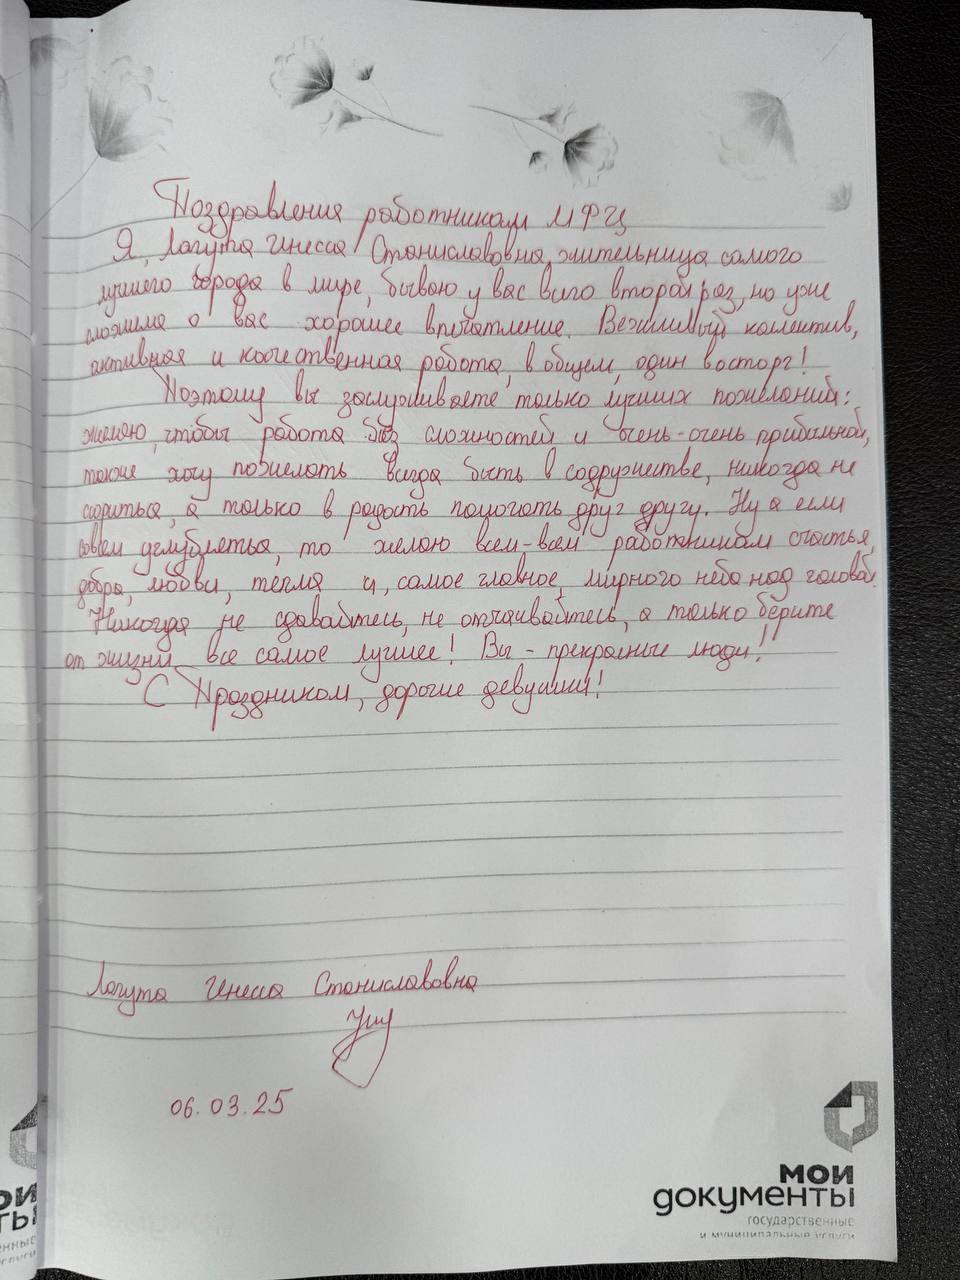 Поздравления работникам МФЦ
Я, Лагута Инесса Станиславовна, жительница самого
лучшего города в мире, бываю у вас всего второй раз, но уже
сложила о вас хорошее впечатление. Вежливый коллектив,
активная и качественная работа, в общем, один восторг!
Поэтому вы заслуживаете только лучших пожеланий:
желаю, чтобы работа без сложностей и очень-очень прибыльной,
также хочу пожелать всегда быть в содружестве, никогда не
сориться, а только в радость помогать друг другу. Ну а если
совсем углубляться, то желаю всем-всем работникам счастья,
добра, любви, тепла и, самое главное, мирного неба над головой.
Никогда не сдавайтесь, не отчаивайтесь, а только берите
от жизни все самое лучшее! Вы - прекрасные люди!
С Праздником, дорогие девушки!
Лагута Инесса Станиславовна
06.03.25
мои
документы
государственные
и муниципальные услуги
ои
ты